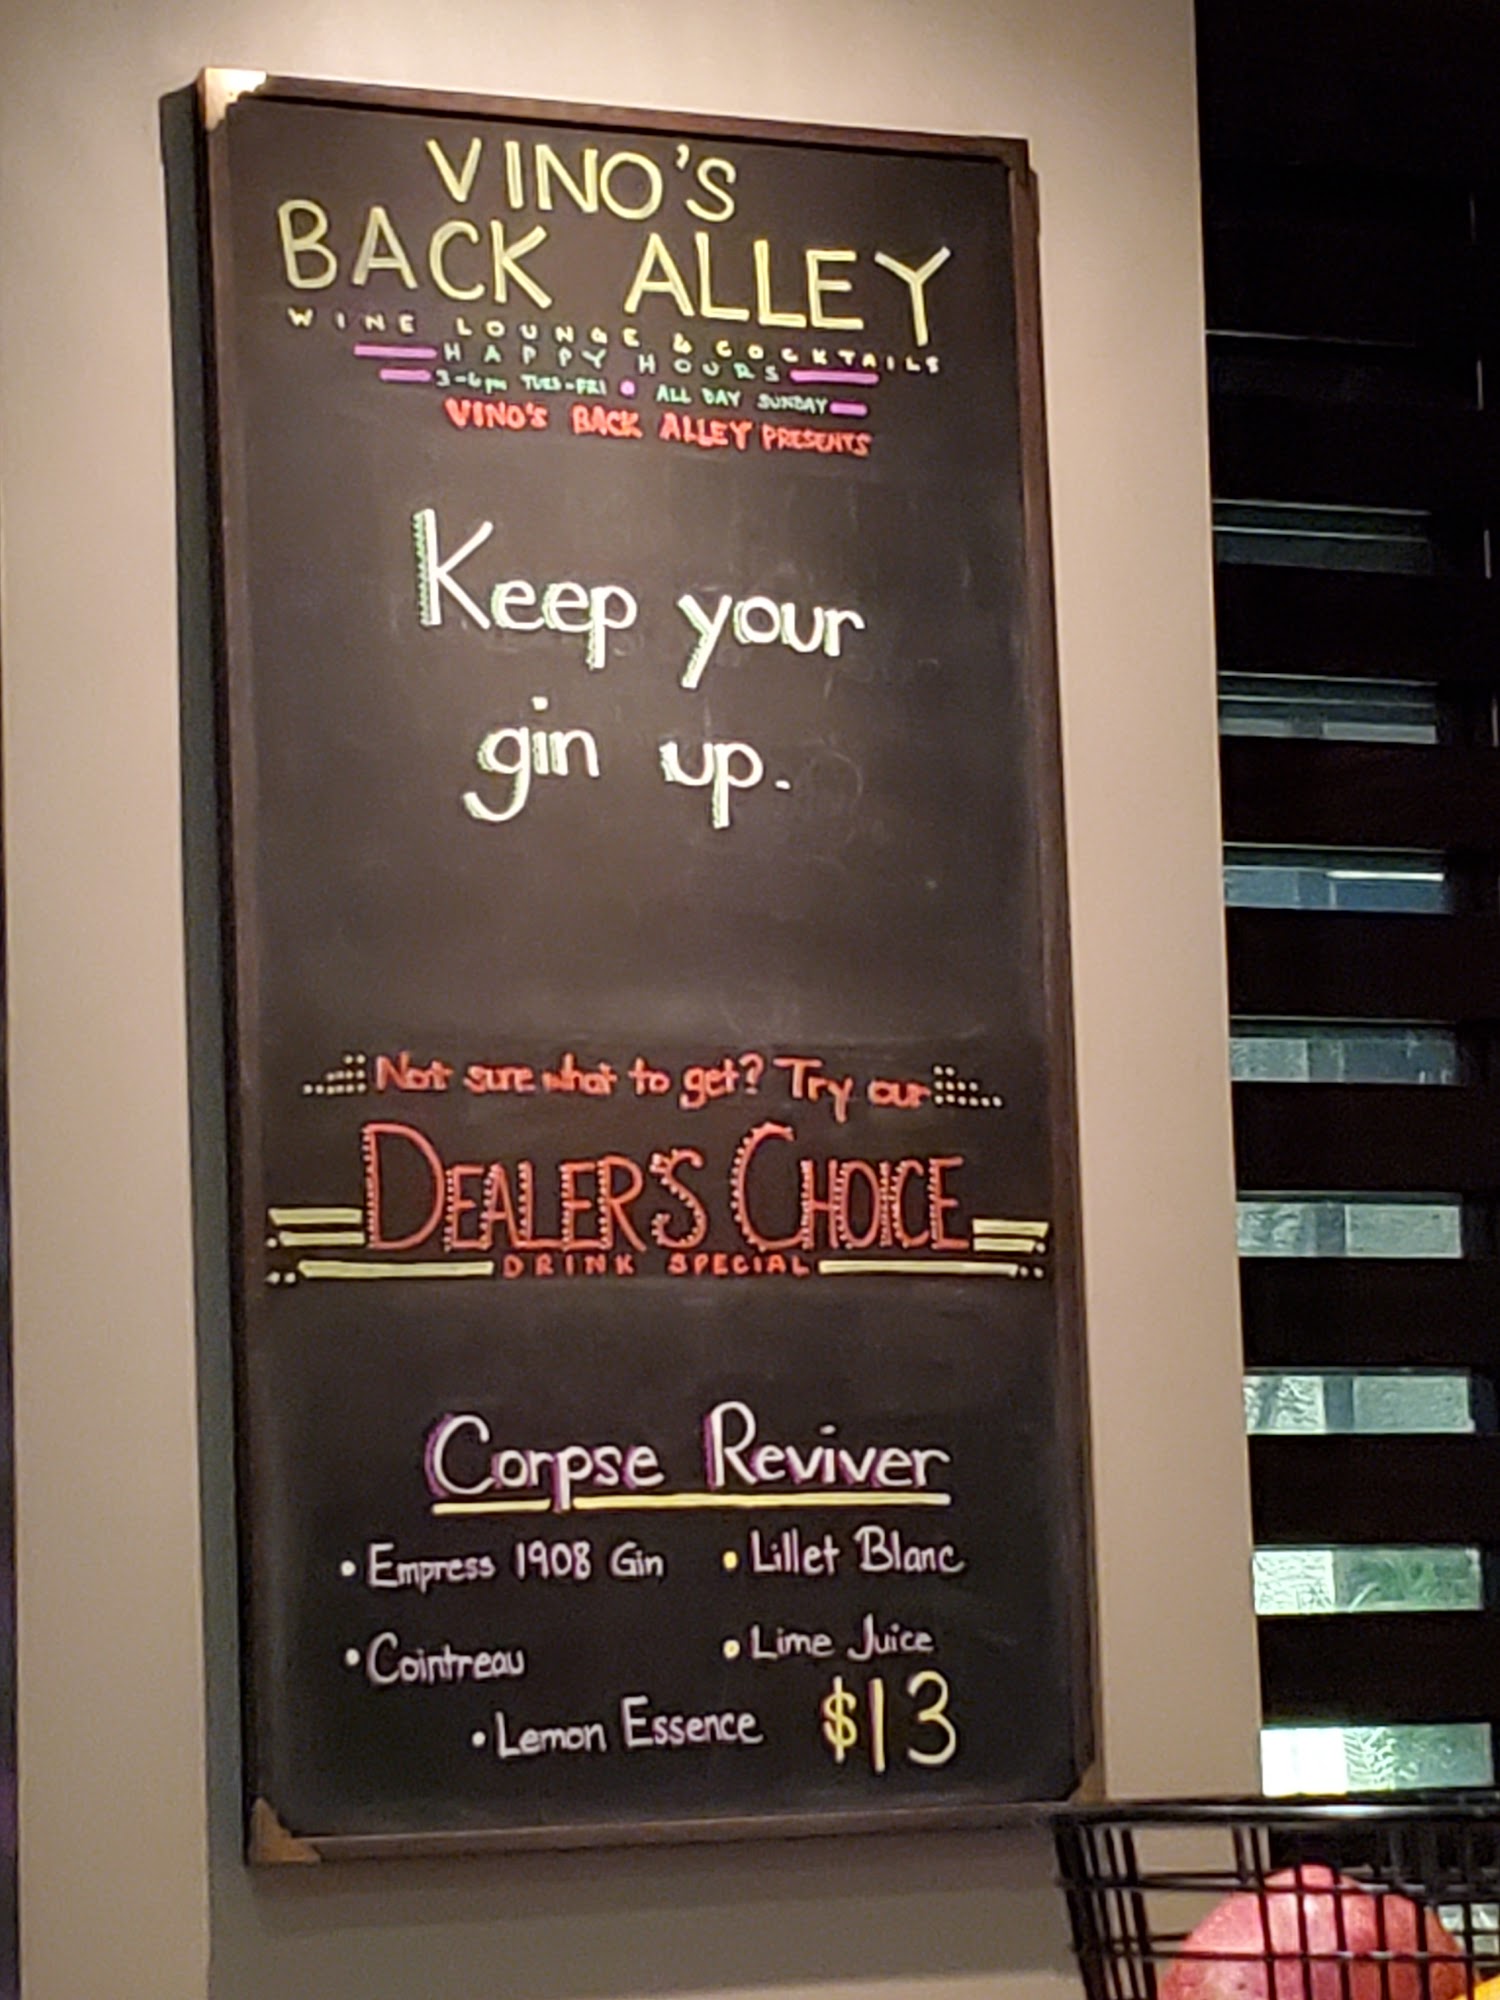 VINO'S
BACK ALLEY
WINE LOUNGE & COCKTAILS
HAPPY HOURS
3-6pm TUES-FRI • ALL DAY SUNDAY
VINO'S BACK ALLEY PRESENTS
Keep your
gin up.
Not sure what to get? Try our
DEALER'S CHOICE
DRINK SPECIAL
Corpse Reviver
• Empress 1908 Gin • Lillet Blanc
• Cointreau • Lime Juice
• Lemon Essence $13